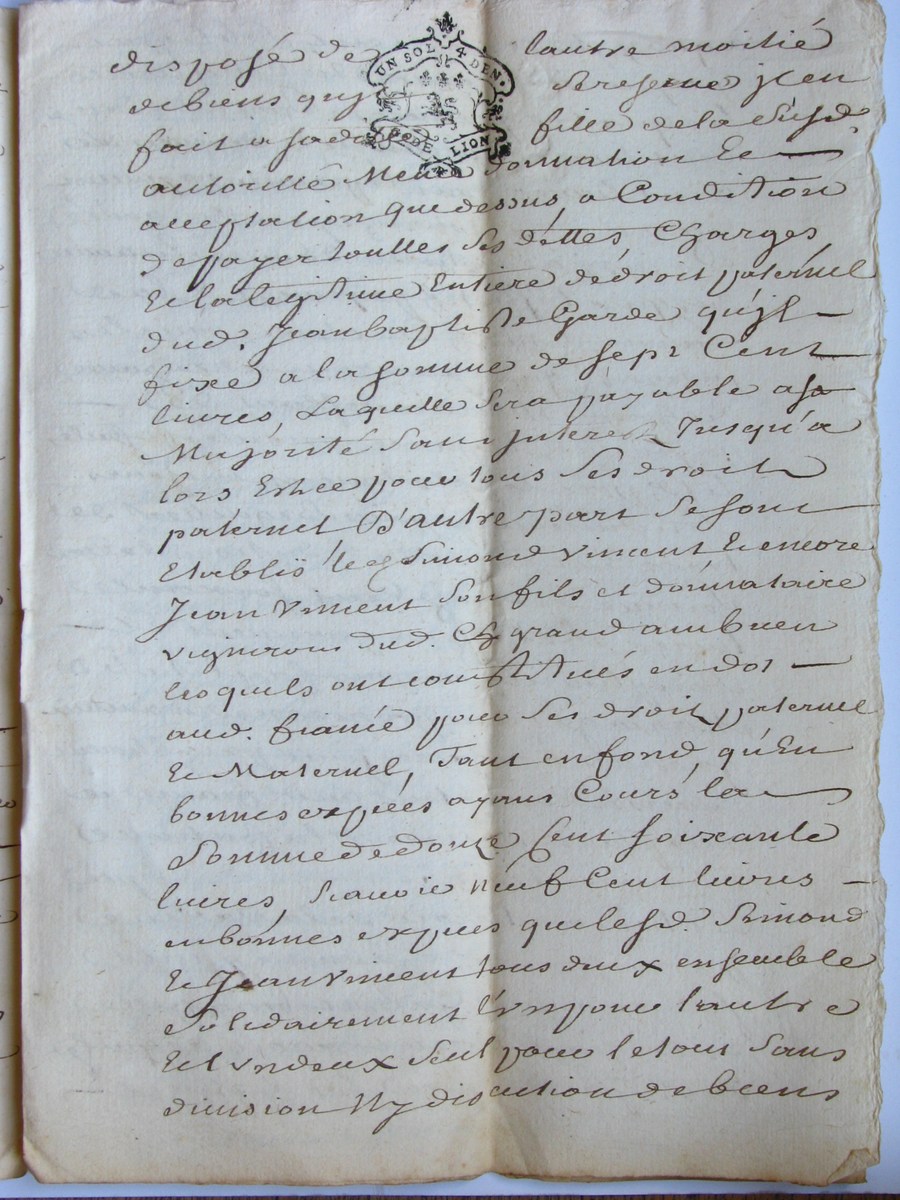 UN SOL 4 DEN.
G. DE LION
disposé de lautre moitié
de biens quj Sereserve jl en
fait a sad. fille de la Susd.
autorité Meme donnation Et
acceptation que dessus, a Condition
de payer touttes Ses dettes, Charges
Et la legitime Entiere de droit paternel
dud. Jean baptiste Garde qu'jl
fixé a la somme de sept Cent
livres, Laquelle sera payable a sa
Majorité sans jnterest Jusqu'a
lors Et ce pour tous Ses droit
paternel D'autre part Se sont
Etablis led. Simond vincent Et encore
Jean Vincent Son fils et donnataire
vignerons dud. grand ambuen
lesquels ont constitués en dot
aud. fiancé pour Ses droit paternel
Et Maternel, Tant en fond, qu'En
bonnes expéces ayans Cours la
Somme de douze Cent soixante
livres, Scavoir neuf Cent livres
en bonnes expeces que lesd. Simond
Et Jean Vincent tous deux ensemble
Solidairement l'un pour l'autre
Et l'un deux seul pour le tout Sans
division Ny discution de biens